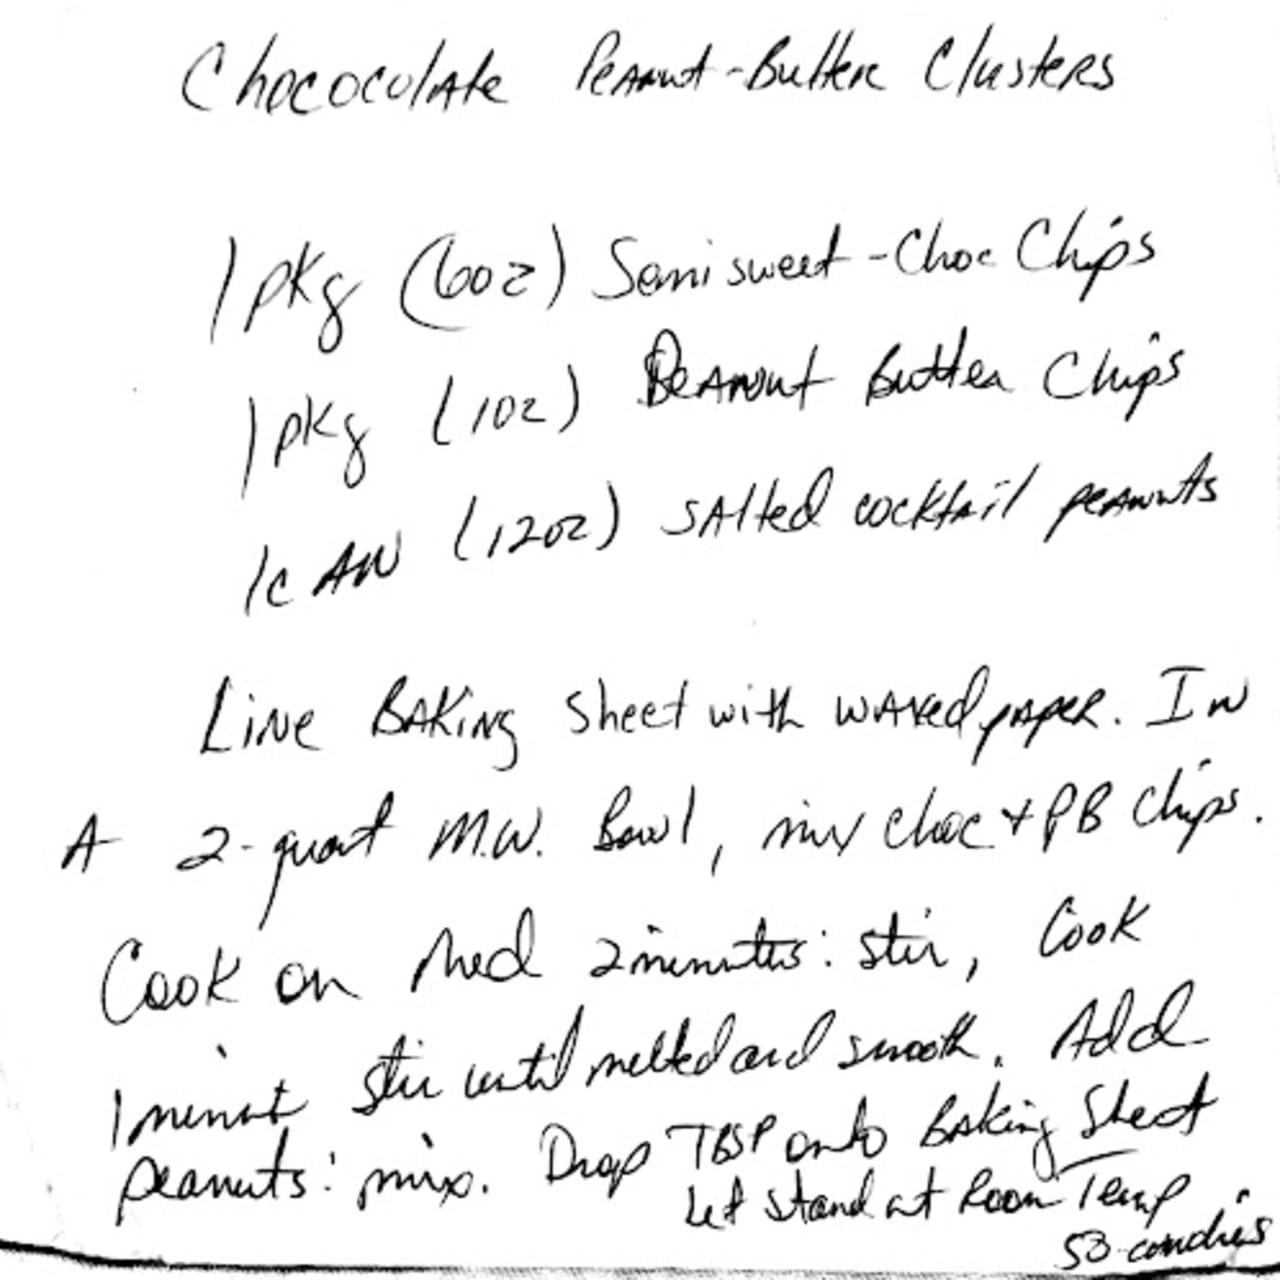 Chococulate Peanut-Butter Clusters
1 pkg (6oz) Semi sweet-Choc Chips
1 pkg (1oz) Peanut Butter Chips
1 can (12oz) salted cocktail peanuts
Line Baking Sheet with waxed paper. In
A 2-quart M.W. Bowl, mix choc + PB Chips.
Cook on Med 2 minutes: stir, Cook
1 minut stir until melted and smooth. Add
peanuts: mix. Drop TBSP onto Baking Sheet
Let stand at Room Temp
50 candies